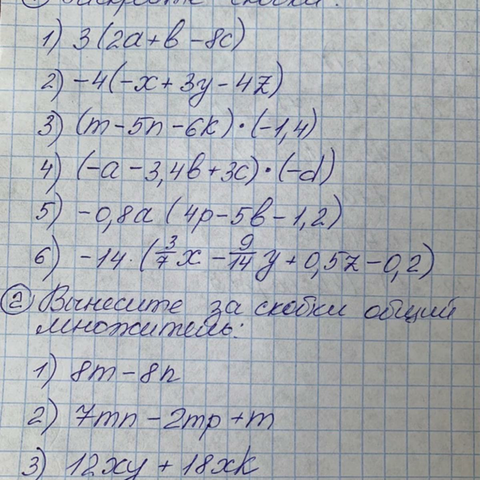 скобки:
1) 3(2a+b-8c)
2) -4(-x+3y-4z)
3) (m-5n-6k)·(-1,4)
4) (-a-3,4b+3c)·(-d)
5) -0,8a(4p-5b-1,2)
6) -14·(3/7x-9/14y+0,5z-0,2)
② Вынесите за скобки общий
множитель:
1) 8m-8n
2) 7mn-2mp+m
3) 12xy+18xk